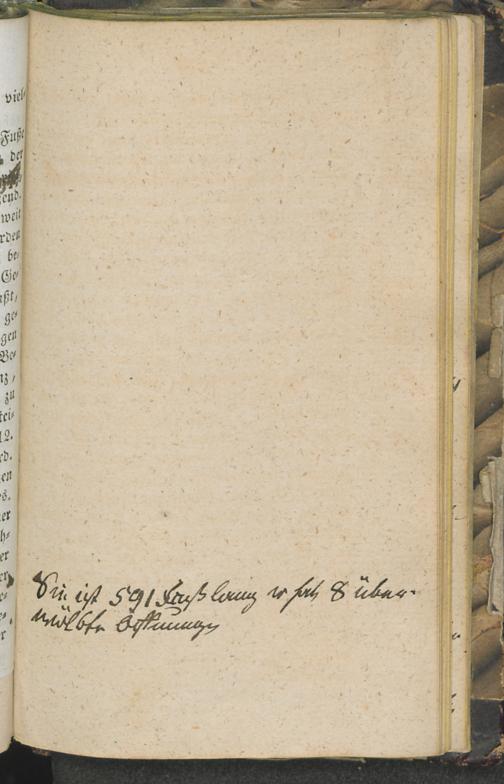 viel-
Fuße
der
end.
weit
rden
be-
Ge-
aßt,
ge-
gen
Be-
nz,
zu
tei-
12.
ed.
en
s.
er
h-
er
er
e-
e-
r
Sie ist 591 Fuß lang u hat 8 über-
wölbte Öffnungen